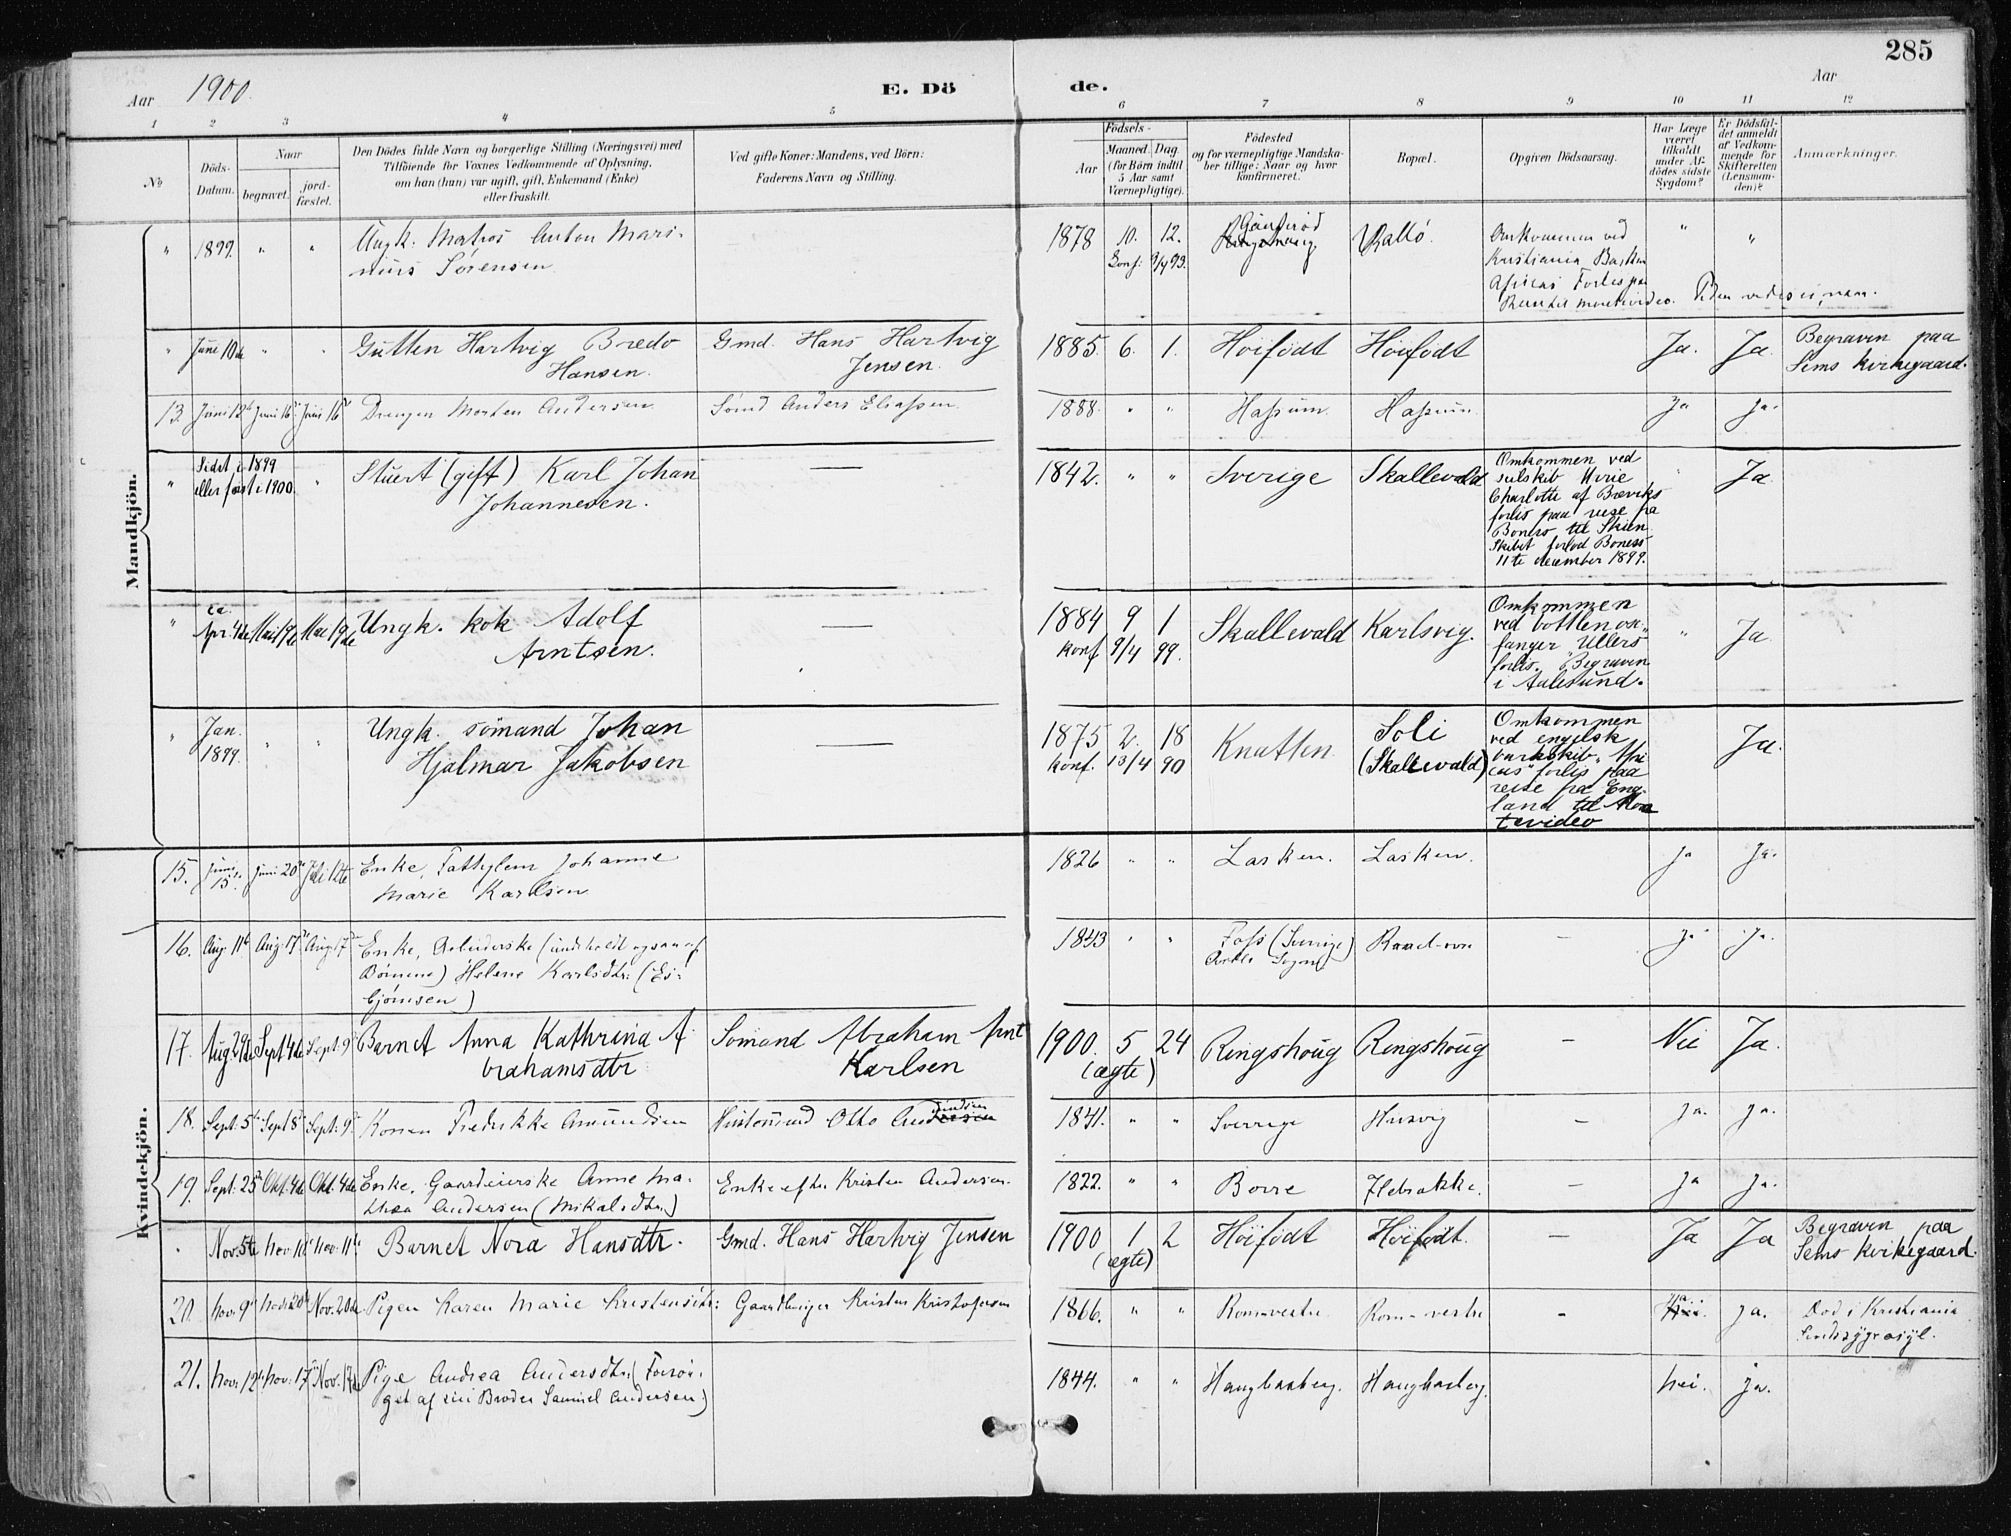 285
Aar 1900.
E. Dö de.
Aar
1 2 3 4 5 6 7 8 9 10 11 12
No
Döds-Datum.
Naar
begravet.
jord-fæstet.
Den Dödes fulde Navn og borgerlige Stilling (Næringsvei) med
Tilföiende for Voxnes Vedkommende af Oplysning,
om han (hun) var ugift, gift, Enkemand (Enke)
eller fraskilt.
Ved gifte Koner: Mandens, ved Börn:
Faderens Navn og Stilling.
Födsels-
Aar
Maaned. Dag
(for Börn indtil
5 Aar samt
Værnepligtige).
Födested
og for værnepligtige Mandska-
ber tillige: Naar og hvor
konfirmeret.
Bopæl.
Opgiven Dödsaarsag.
Har Læge
været
tilkaldt
under Af-
dödes sidste
Sygdom?
Er Dödsfal-
det anmeldt
af Vedkom-
mende for
Skifteretten
(Lensman-
den)?
Anmærkninger.
Mandkjön.
" 1899. " " Ungk. Matros Anton Mari- 1878 10. 12. Vallö. Omkommen ved " "
nius Sørensen. Konf. 9/4 93. Kristiania Barken
Africas Forlis paa
Reisen til Montevideo. Tiden vides ei, naar.
" Juni 10de " " Gutten Hartvig Bredo Gmd. Hans Hartvig 1885. 6. 1. Höifödt Höifödt Ja. Ja. Begraven paa
Hansen. Jensen. Sems kirkegaard.
13. Juni 12te Juni 16de Juni 16de Drengen Morten Andersen. Sømd Anders Eliassen. 1888. " " Hassum. Hassum. Ja ja.
" Sidst i 1899 Stuert (gift) Karl Johan — 1842. " " Sverige Skallevald Omkommen ved " Ja.
eller først i 1900. " Johannesen. seilskib Marie
Charlotte af Breviks
forlis paa reise fra
Boness til Skien.
Skibet forlod Boness
11te december 1899.
" ca. Apr. 4de Mai 19de Mai 19de Ungk. kok Adolf — 1884 9 1 Skallevald Karlsvig. Omkommen " Ja.
Arntsen. konf 9/4 99. ved bottlenose-
fanger "Ullers"
forlis. Begraven
i Aalesund.
" Jan. " " Ungk. sömand Johan — 1875 2. 18 Knatten Soli Omkommen Ja.
1899. Hjalmar Jakobsen konf. 13/4 90 (Skallevald) ved engelsk
barkskib "Afri-
cas" forlis paa
reise fra Eng-
land til Mon-
tevideo
Kvindekjön.
15. Juni 15. Juni 20de Juli 12te Enke, Fattiglem Johanne 1826 " " Lasken. Lasken. ja ja.
Marie Karlsen
16. Aug. 11te Aug. 17de Aug. 17de Enke, Arbeiderske (underholdt ogsaa af 1843 " " Foss (Sverige) — ja ja.
Børnene) Helene Karlsdtr. (Es-
björnsen)
17. Aug 29de Sept 4de Sept. 9de Barnet Anna Kathrina A- Sömand Abraham Arnt 1900. 5 24 Ringshoug Ringshoug — Nei Ja.
brahamsdtr Karlsen (ægte)
18. Sept. 5te Sept 8de Sept. 9de Konen Fredrikke Amundsen Otto Amundsen 1841. " " Sverrige Husvig — ja. ja.
19. Sept. 25de Okt. 4de Okt. 4de Enke, Gaardeierske Anne Ma- Enke efter Kristen Andersen. 1822. " " Borre — ja ja.
thea Andersen (Mikalsdtr.)
" Nov. 5te Nov. 10de Nov. 11te Barnet Nora Hansdtr. Gmd. Hans Hartvig Jensen 1900 1 2 Höifödt Höifödt. — Ja Ja Begraven paa
(ægte) Sems kirkegaard.
20. Nov. 9de Nov. 20de Nov. 20de Pigen Karen Marie Kristensdtr: Gaardbruger Kristen Kristofersen 1866. " " Rom-vestre Rom-vestre — ja. Död i Kristiania
21. Nov. 12te Nov. 17de Nov. 17de Pige Andrea Andersdtr. (Forsör- 1844. " " Haugbasberg. Haugbasberg. nei. ja.
get af sin Broder Samuel Andersen)